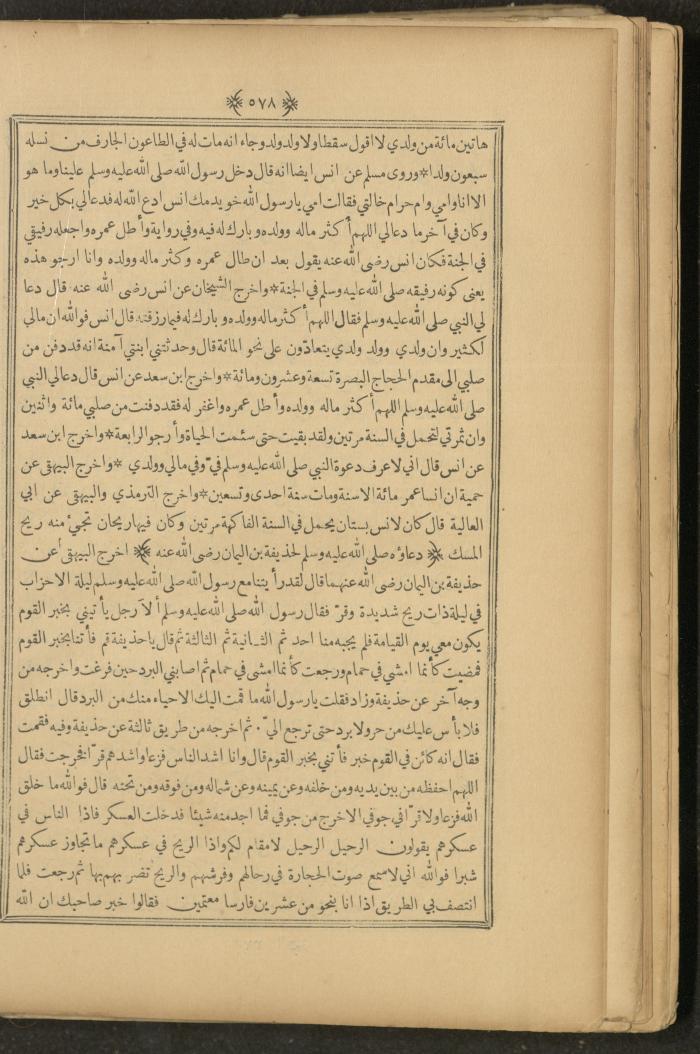 ﴿ ٥٧٨ ﴾
هاتين مائة من ولدي لا اقول سقطا ولا ولد ولد وجاء انه مات له في الطاعون الجارف من نسله
سبعون ولدا * وروى مسلم عن انس ايضا انه قال دخل رسول الله صلى الله عليه وسلم علينا وما هو
الا انا وامي وام حرام خالتي فقالت امي يا رسول الله خويدمك انس ادع الله له فدعا لي بكل خير
وكان في آخر ما دعا لي اللهم أكثر ماله وولده وبارك له فيه وفي رواية وأطل عمره واجعله رفيقي
في الجنة فكان انس رضى الله عنه يقول بعد ان طال عمره وكثر ماله وولده وانا ارجو هذه
يعنى كونه رفيقه صلى الله عليه وسلم في الجنة * واخرج الشيخان عن انس رضى الله عنه قال دعا
لي النبي صلى الله عليه وسلم فقال اللهم أكثر ماله وولده وبارك له فيما رزقته قال انس فوالله ان مالي
لكثير وان ولدي وولد ولدي يتعادّون على نحو المائة قال وحدثتني ابنتي آمنة انه قد دفن من
صلبي الى مقدم الحجاج البصرة تسعة وعشرون ومائة * واخرج ابن سعد عن انس قال دعا لي النبي
صلى الله عليه وسلم اللهم أكثر ماله وولده وأطل عمره واغفر له فقد دفنت من صلبي مائة واثنين
وان ثمرتي لتحمل في السنة مرتين ولقد بقيت حتى سئمت الحياة وأرجو الرابعة * واخرج ابن سعد
عن انس قال اني لاعرف دعوة النبي صلى الله عليه وسلم فيّ وفي مالي وولدي * واخرج البيهقى عن
حمية ان انسا عمر مائة الا سنة ومات سنة احدى وتسعين * واخرج الترمذي والبيهقى عن ابي
العالية قال كان لانس بستان يحمل في السنة الفاكهة مرتين وكان فيها ريحان تجيء منه ريح
المسك ﴿ دعاؤه صلى الله عليه وسلم لحذيفة بن اليمان رضى الله عنه ﴾ اخرج البيهقى عن
حذيفة بن اليمان رضى الله عنهما قال لقد رأيتنا مع رسول الله صلى الله عليه وسلم ليلة الاحزاب
في ليلة ذات ريح شديدة وقرّ فقال رسول الله صلى الله عليه وسلم ألا رجل يأتيني بخبر القوم
يكون معي يوم القيامة فلم يجبه منا احد ثم الثانية ثم الثالثة ثم قال يا حذيفة قم فأتنا بخبر القوم
فمضيت كأنما امشي في حمام ورجعت كأنما امشى في حمام ثم اصابني البرد حين فرغت واخرجه من
وجه آخر عن حذيفة وزاد فقلت يا رسول الله ما قمت اليك الا حياء منك من البرد قال انطلق
فلا بأس عليك من حر ولا برد حتى ترجع اليّ ٠ ثم اخرجه من طريق ثالثة عن حذيفة وفيه فقمت
فقال انه كائن في القوم خبر فأتني بخبر القوم قال وانا اشد الناس فزعا واشدهم قرّا فخرجت فقال
اللهم احفظه من بين يديه ومن خلفه وعن يمينه وعن شماله ومن فوقه ومن تحته قال فوالله ما خلق
الله فزعا ولا قرّا في جوفي الا خرج من جوفي فما اجد منه شيئا فدخلت العسكر فاذا الناس في
عسكرهم يقولون الرحيل الرحيل لا مقام لكم واذا الريح في عسكرهم ما تجاوز عسكرهم
شبرا فوالله اني لاسمع صوت الحجارة في رحالهم وفرشهم والريح تضربهم بها ثم رجعت فلما
انتصف بي الطريق اذا انا بنحو من عشرين فارسا معتمين فقالوا خبر صاحبك ان الله